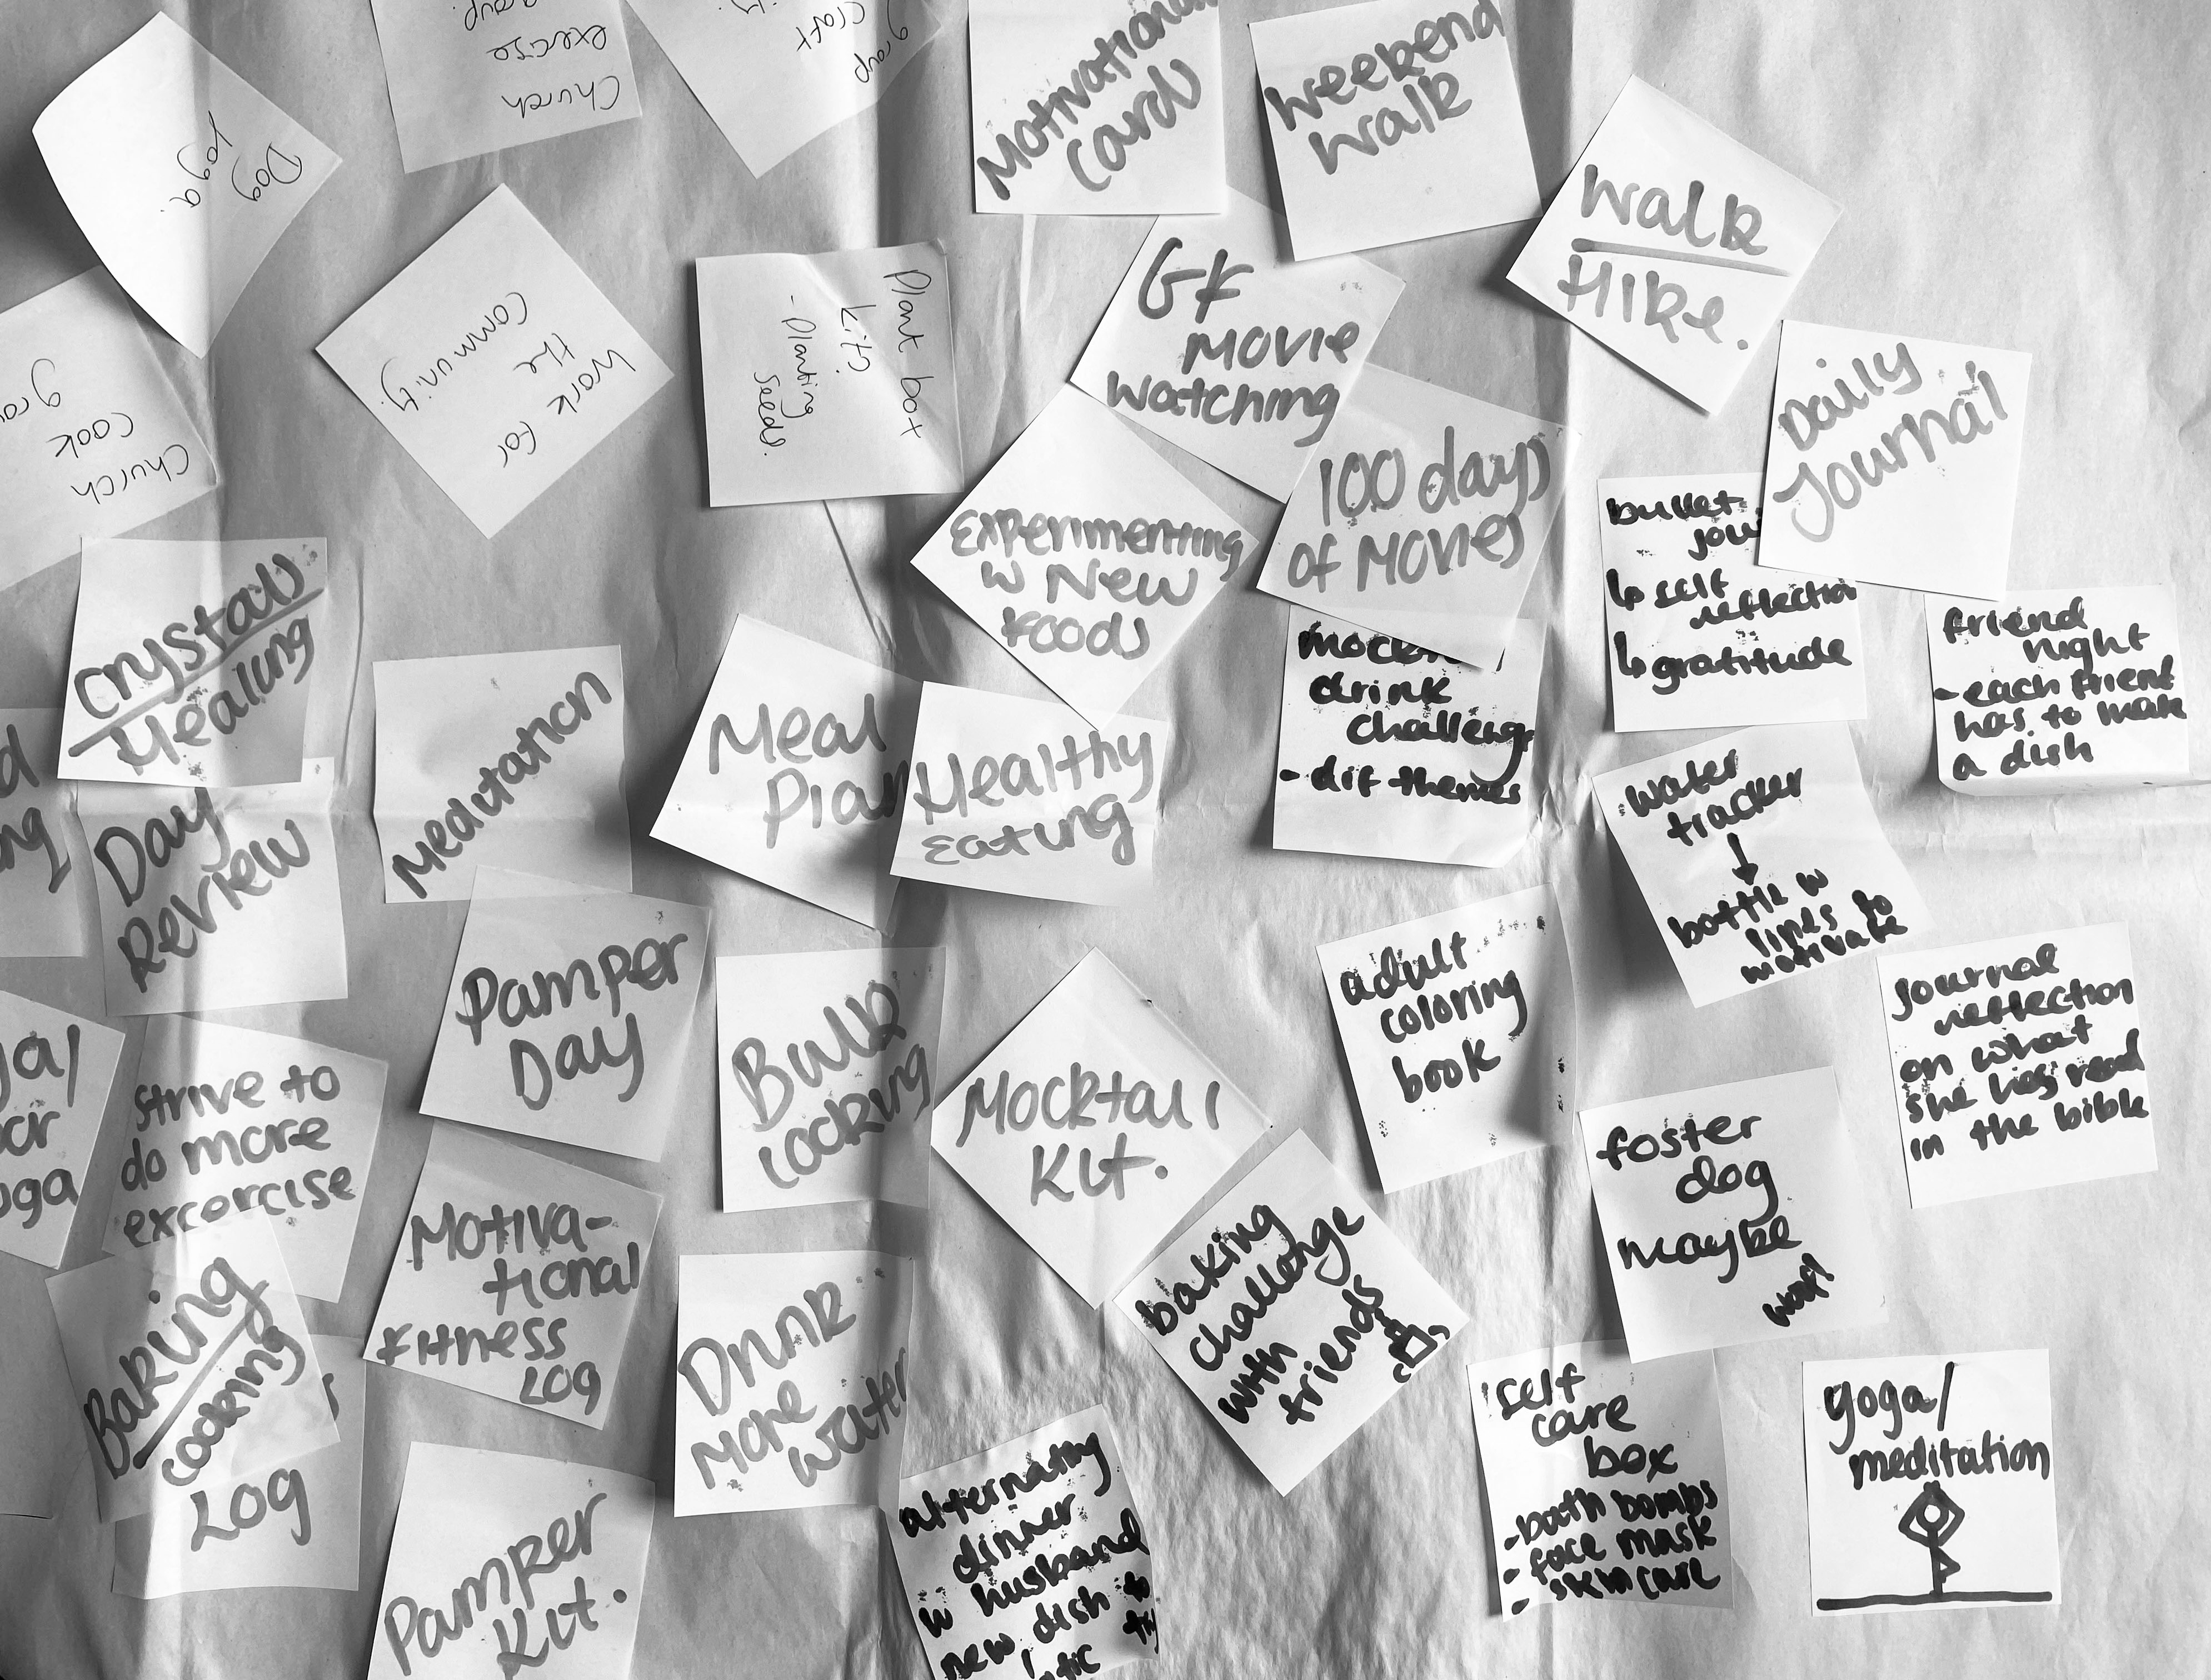 Dog
Yoga.
Church
exercise
group.
group
craft
Motivational
Card
Weekend
Walk
Walk
Hike.
Church
cook
Work for
the
community.
Plant box
kit?
- Planting
seeds.
GF
Movie
Watching
100 days
of Movies
Daily
Journal
Experimenting
w New
Foods
bullet
↳ self
reflection
↳ gratitude
friend
night
- each friend
has to make
a dish
Crystals
Healing
Meditation
Meal
Plan
Healthy
Eating
drink
challenge
- dif themes
water
tracker
↓
bottle w
lines to
motivate
Day
Review
Pamper
Day
Bulk
Cooking
Mocktail
Kit.
adult
coloring
book
journal
reflection
on what
she has read
in the bible
strive to
do more
excercise
Motiva-
tional
Fitness
Log
Drink
More
Water
baking
challenge
with
friends
foster
dog
maybe
woof!
Baking
cooking
Log
Pamper
Kit.
alternating
dinner
w husband
new dish to
try
self
care
box
- bath bombs
- face mask
- skin care
yoga/
meditation